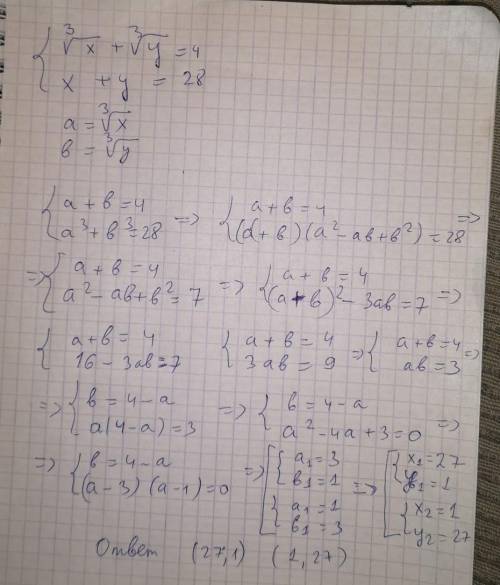 { ∛x + ∛y = 4
x + y = 28
a = ∛x
в = ∛y
{ a + в = 4
a³ + в³ = 28 => { a + в = 4
(a + в)(a² - aв + в²) = 28 =>
=> { a + в = 4
a² - aв + в² = 7 => { a + в = 4
(a + в)² - 3aв = 7 =>
{ a + в = 4
16 - 3aв = 7 { a + в = 4
3aв = 9 => { a + в = 4
aв = 3 =>
=> { в = 4 - a
a(4 - a) = 3 => { в = 4 - a
a² - 4a + 3 = 0 =>
=> { в = 4 - a
(a - 3)(a - 1) = 0 => [ { a₁ = 3
в₁ = 1
{ a₁ = 1
в₁ = 3 => [ { x₁ = 27
y₁ = 1
{ x₂ = 1
y₂ = 27
Ответ (27,1) (1,27)